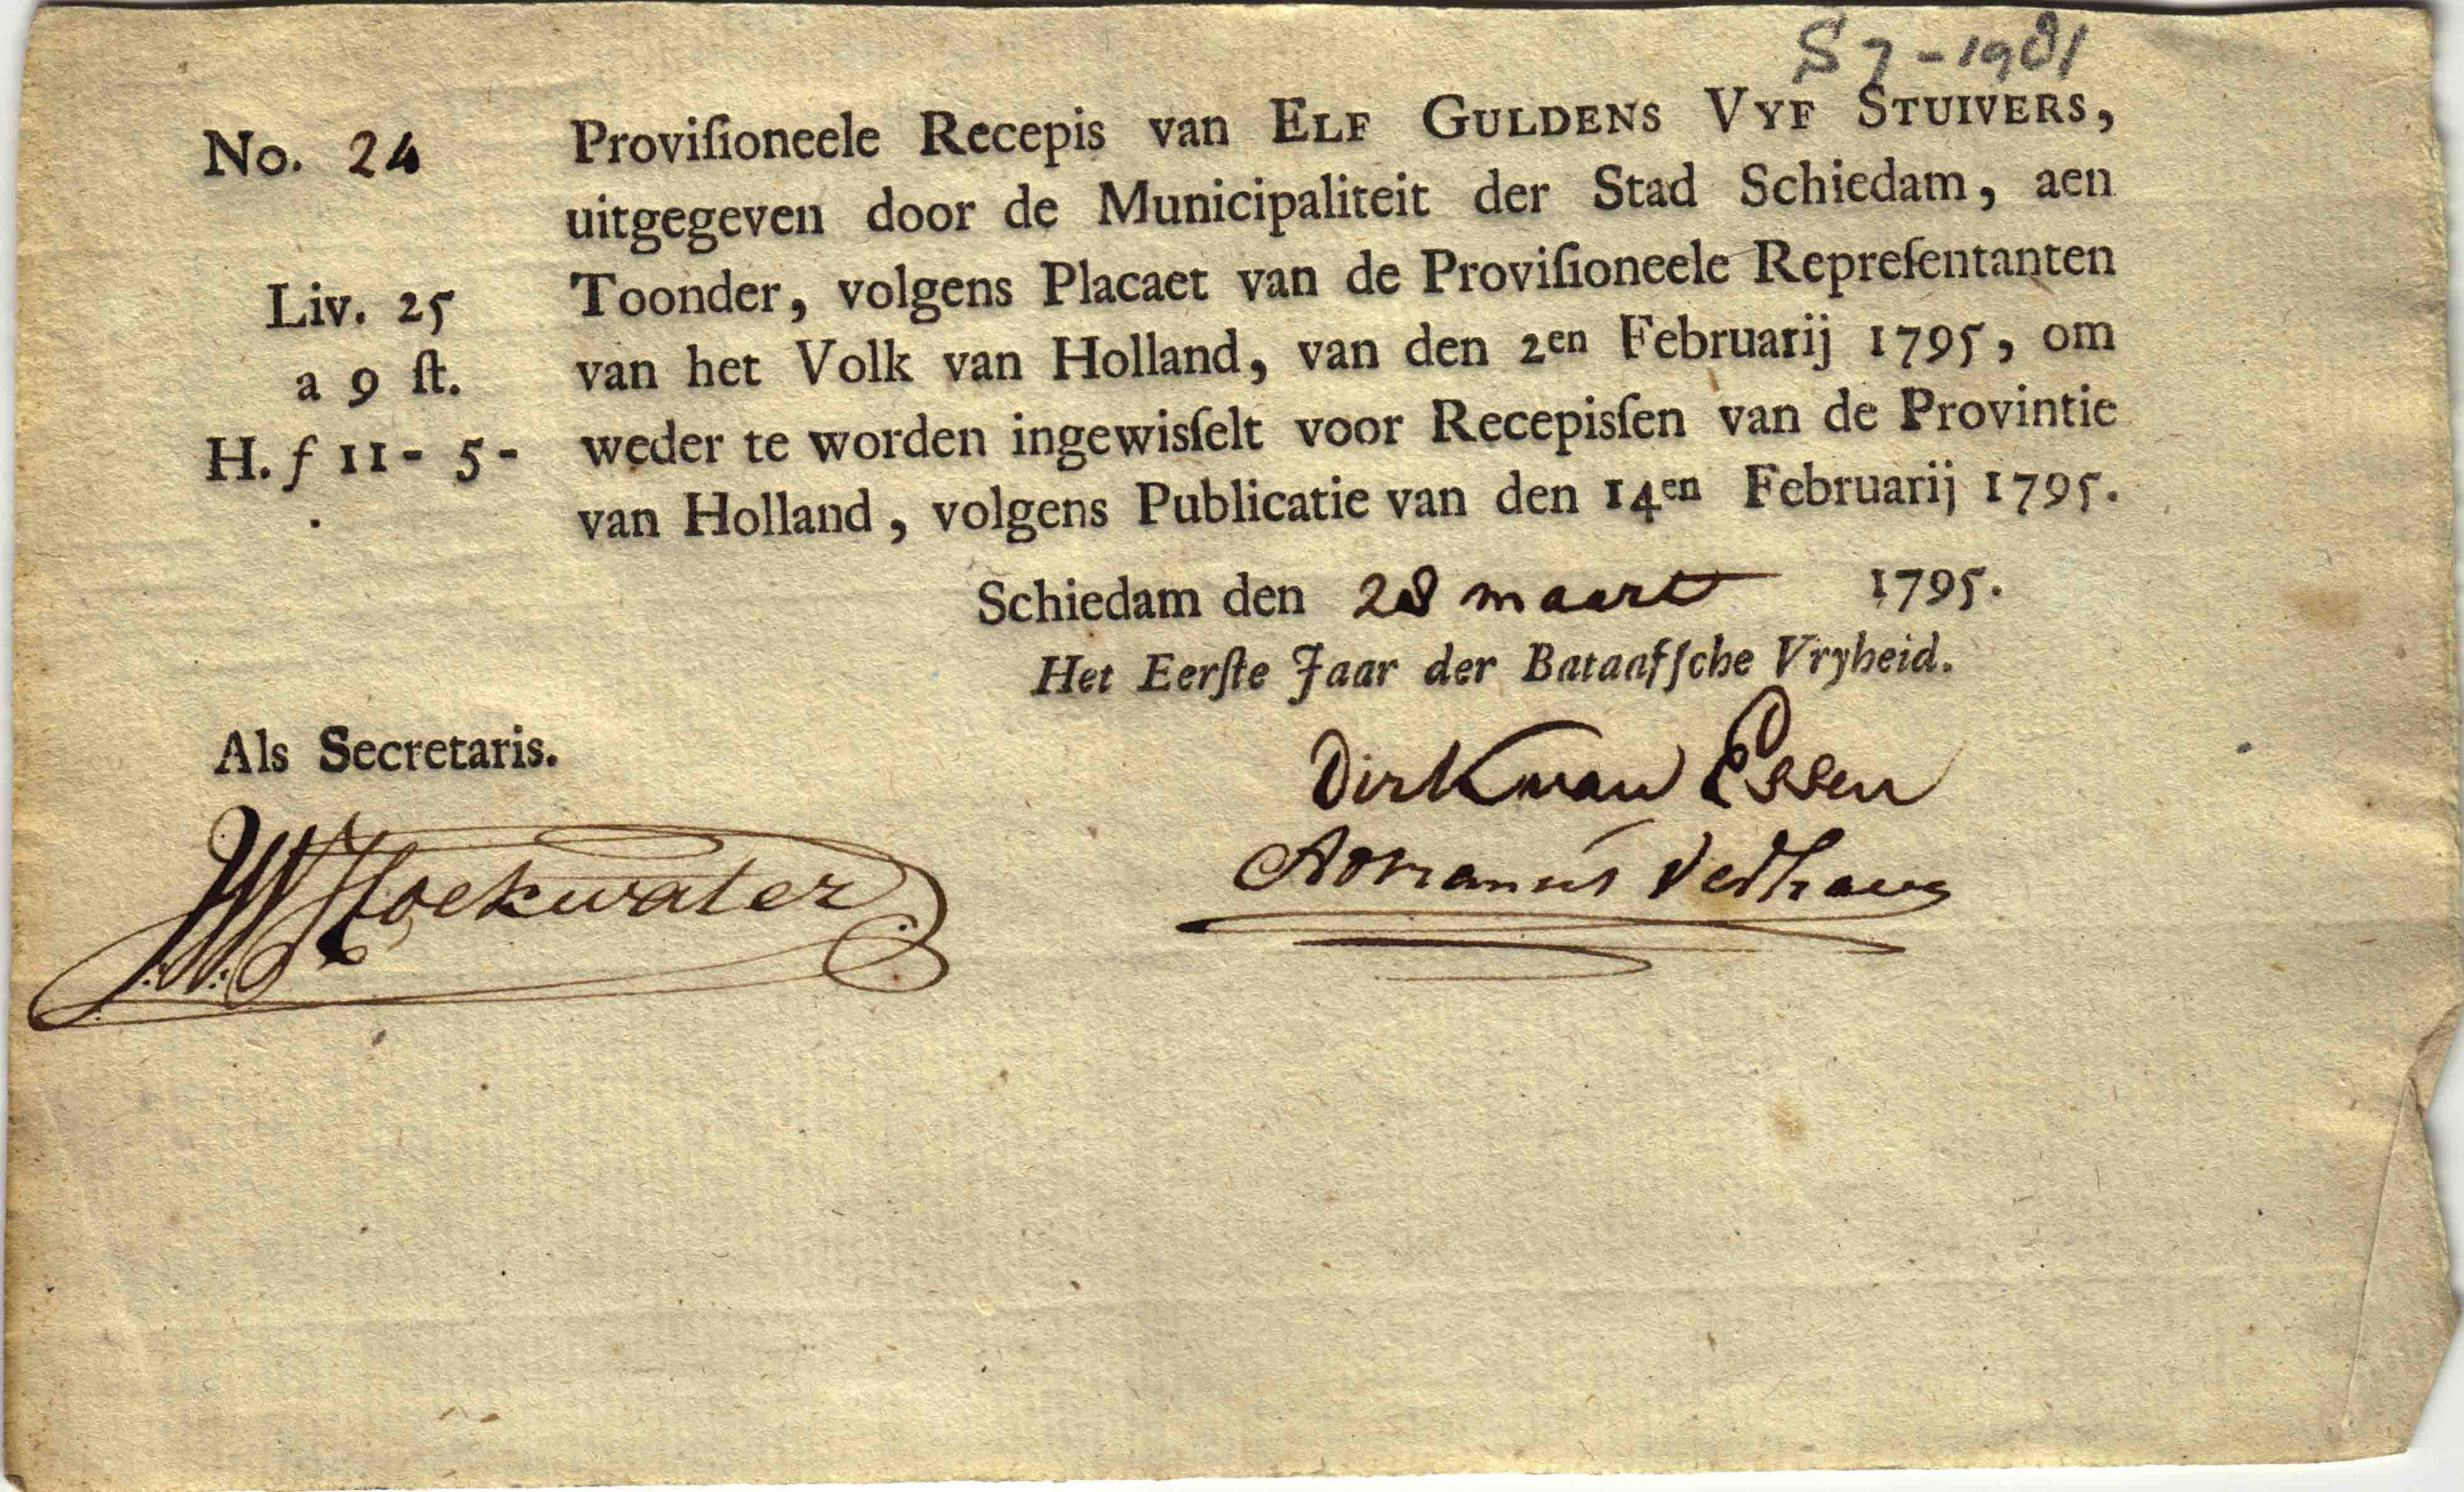 S 7 - 1981
No. 24
Proviſioneele Recepis van ELF GULDENS VYF STUIVERS,
uitgegeven door de Municipaliteit der Stad Schiedam, aen
Toonder, volgens Placaet van de Proviſioneele Repreſentanten
van het Volk van Holland, van den 2en Februarij 1795, om
weder te worden ingewisſelt voor Recepisſen van de Provintie
van Holland, volgens Publicatie van den 14en Februarij 1795.
Liv. 25
a 9 ſt.
H. f 11 - 5 -
Schiedam den 28 maart 1795.
Het Eerſte Jaar der Bataafſche Vryheid.
Als Secretaris.
Hoekwater
Dirk van Essen
Adrianus